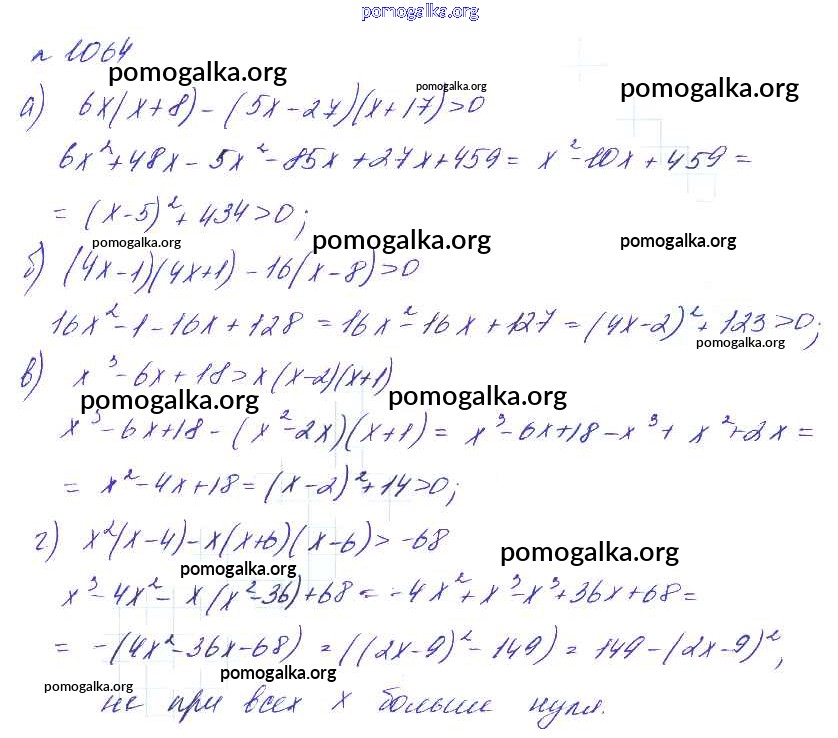 pomogalka.org
n 1064
pomogalka.org pomogalka.org pomogalka.org
а) 6x(x+8)-(5x-27)(x+17)>0
6x²+48x-5x²-85x+27x+459= x²-10x+459=
= (x-5)²+434>0;
pomogalka.org pomogalka.org pomogalka.org
б) (4x-1)(4x+1)-16(x-8)>0
16x²-1-16x+128=16x²-16x+127=(4x-2)²+123>0;
pomogalka.org
в) x³-6x+18>x(x-2)(x+1)
pomogalka.org pomogalka.org
x³-6x+18-(x²-2x)(x+1)= x³-6x+18-x³+x²+2x=
= x²-4x+18=(x-2)²+14>0;
г) x²(x-4)-x(x+6)(x-6)>-68
pomogalka.org pomogalka.org
x³-4x²-x(x²-36)+68=-4x²+x³-x³+36x+68=
= -(4x²-36x-68)=((2x-9)²-149)=149-(2x-9)²,
pomogalka.org pomogalka.org
не при всех x больше нуля.